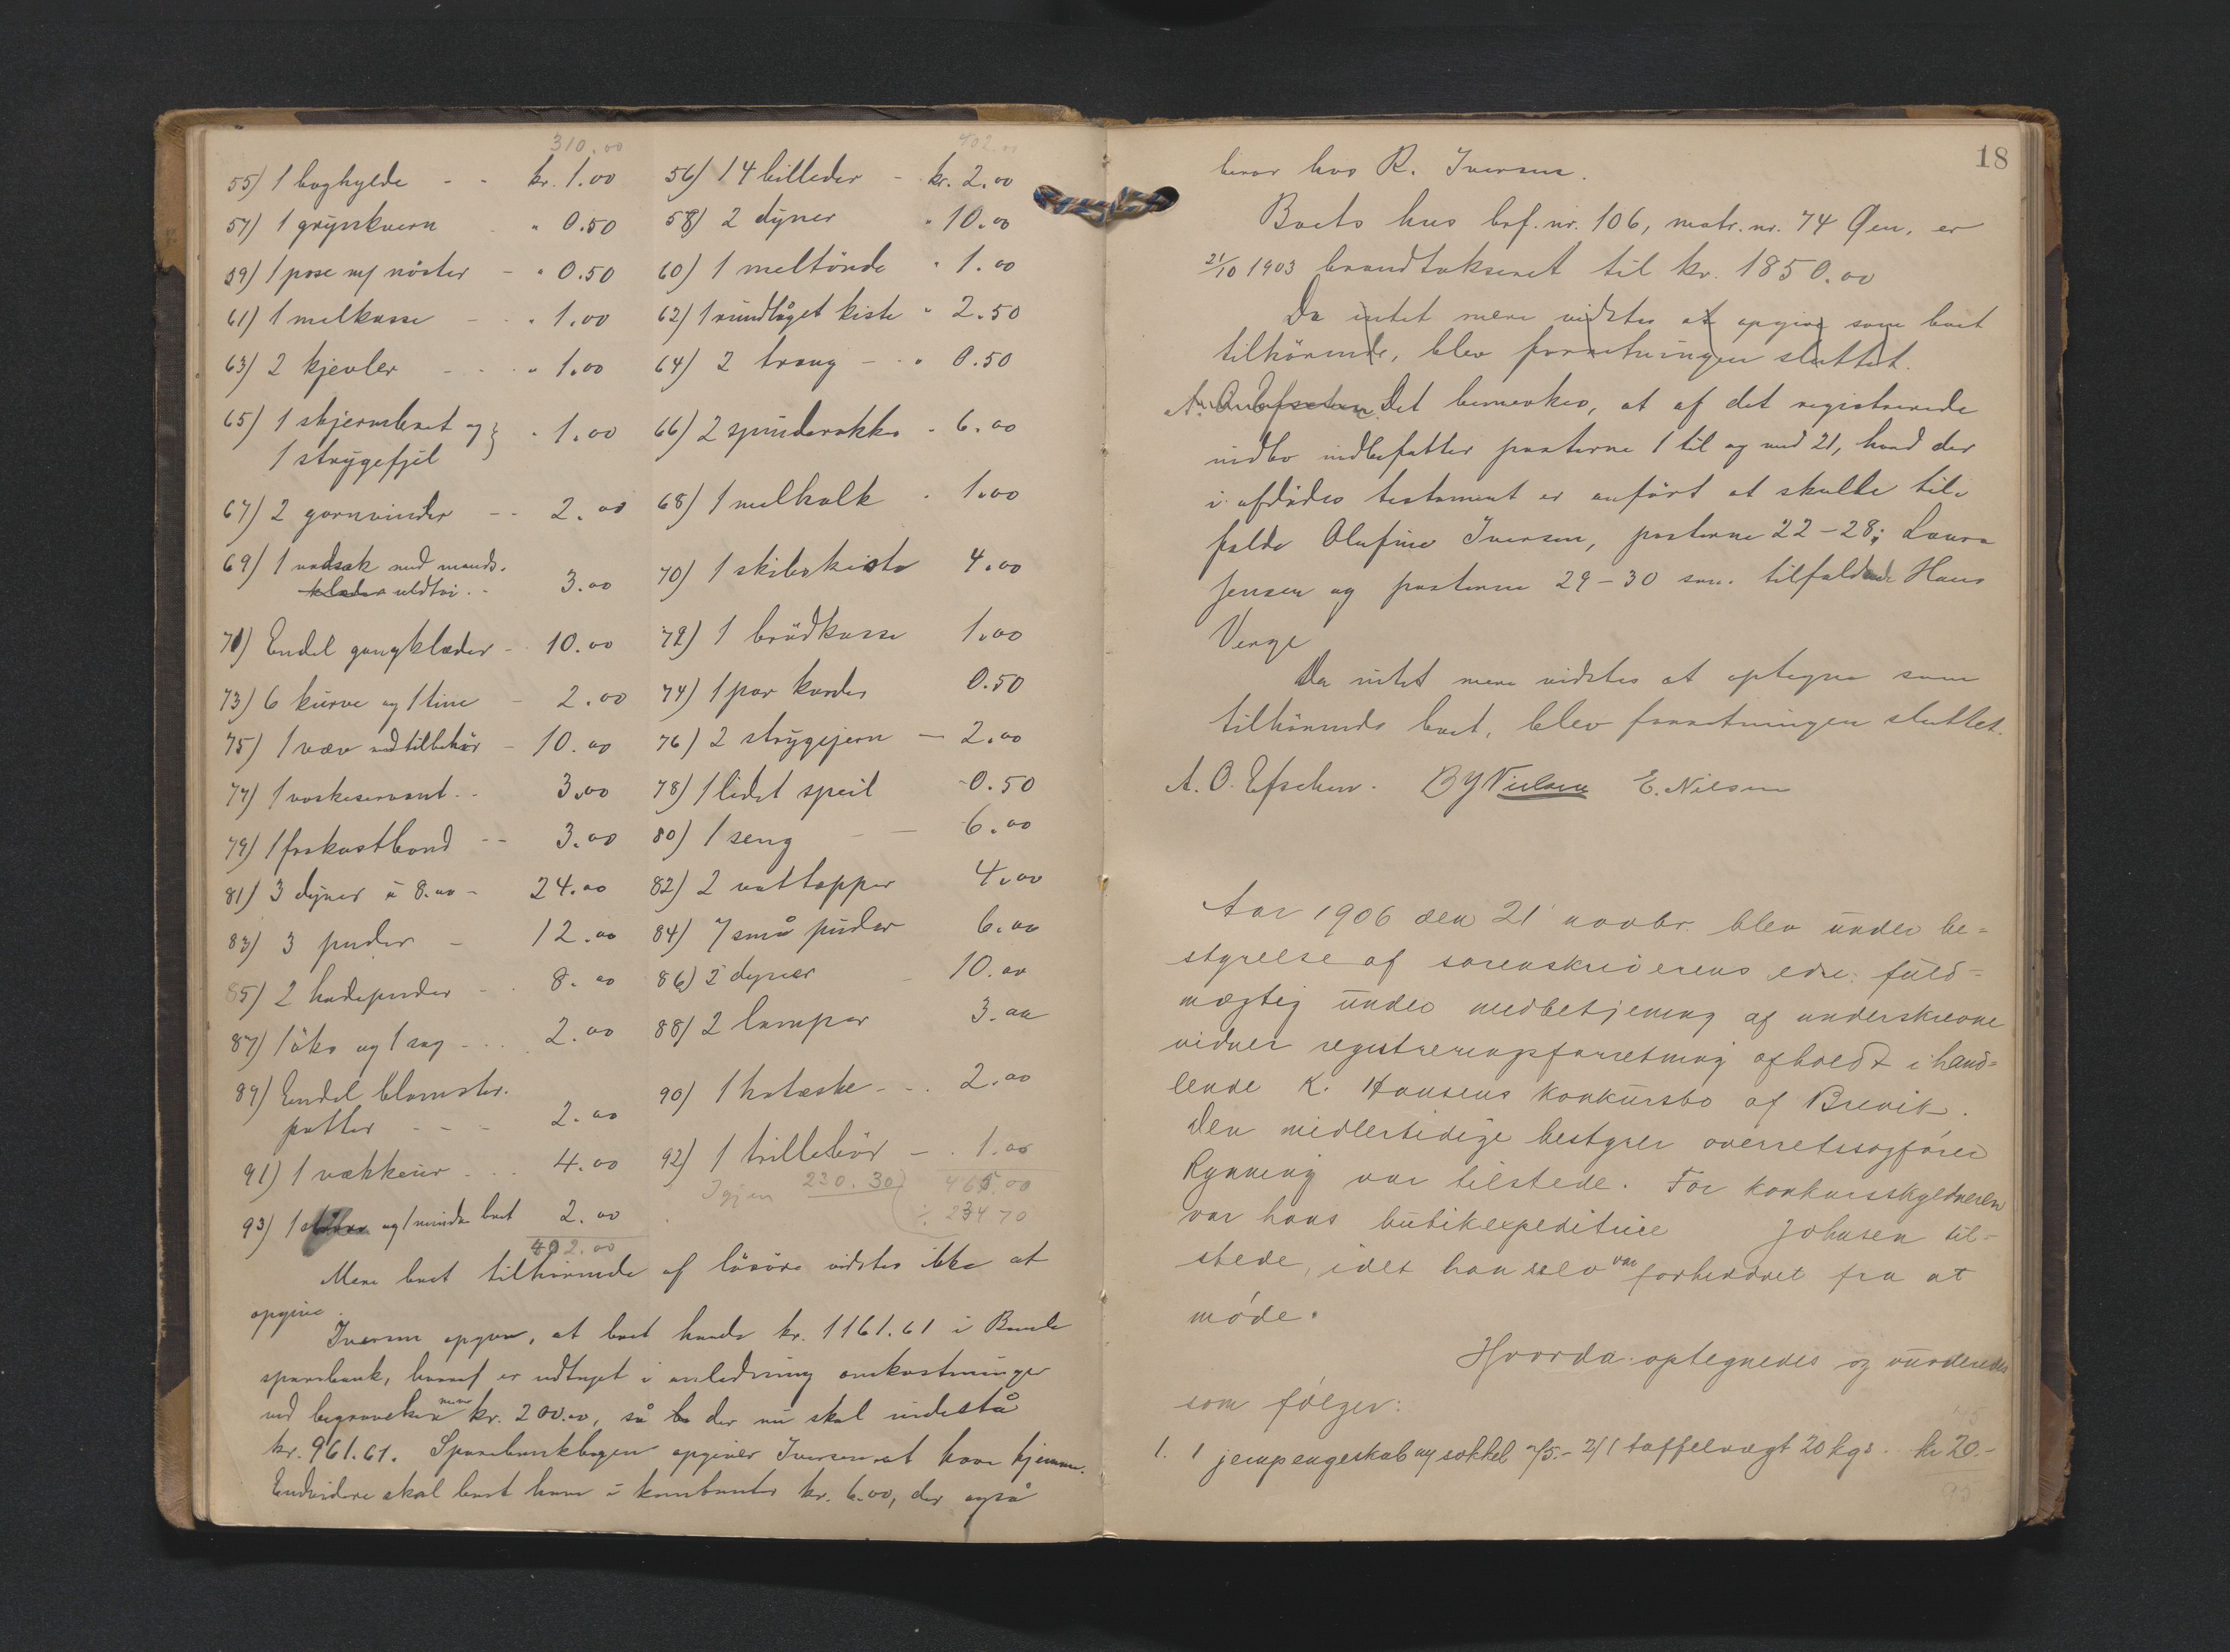 310.00
402.00
55) 1 boghylde - - kr. 1.00
56) 14 billeder - kr. 2.00
57) 1 grynkvern - " 0.50
58) 2 dyner " 10.00
59) 1 pose m/ nöster - " 0.50
60) 1 meltönde " 1.00
61) 1 melkasse - " 1.00
62) 1 rundlåget kiste " 2.50
63) 2 kjevler - - " 1.00
64) 2 traug - " 0.50
65) 1 skjermbret og
1 strygefjel " 1.00
66) 2 spinderokke " 6.00
67) 2 garnvinder - - 2.00
68) 1 melholk " 1.00
69) 1 vadsæk med mands-
klæder uldtöi. - 3.00
70) 1 skibskiste 4.00
71) Endel gangklæder - 10.00
72) 1 brödkasse 1.00
73) 6 kurve og 1 tine - 2.00
74) 1 par karder 0.50
75) 1 væv med tilbehör - 10.00
76) 2 strygejern - 2.00
77) 1 vaskeservant - - 3.00
78) 1 lidet speil - 0.50
79) 1 frokostbord - - 3.00
80) 1 seng - - 6.00
81) 3 dyner à 8.00 - 24.00
82) 2 vattepper 4.00
83) 3 puder - 12.00
84) 7 små puder 6.00
85) 2 hodepuder - - 8.00
86) 2 dyner - 10.00
87) 1 öks og 1 sag - - 2.00
88) 2 lamper 3.00
89) Endel blomster-
potter - - - 2.00
90) 1 hateske - - 2.00
91) 1 vækkeur - - 4.00
92) 1 trillebör - 1.00
Igjen 230.30
465.00
÷ 234 70
93) 1 og 1 mindre bord 2.00
402.00
Mere boet tilhörende af lösöre vidstes ikke at
opgive.
Iversen opgav, at boet havde kr. 1161.61 i Bamle
sparebank, hvoraf er udtaget i anledning omkostninger
ved begravelsen kr. 200.00, så der nu skal indestå
kr. 961.61. Sparebankbogen opgiver Iversen at have hjemme.
Endvidere skal boet have i kontanter kr. 6.00, der også
18
beror hos R. Iversen.
Boets hus brf. nr. 106, matr. nr. 74 Øen, er
21/10 1903 brandtakseret til kr. 1850.00
Da intet mere vidstes at opgive som boet
tilhörende, blev forretningen sluttet.
Det bemerkes, at af det registrerede
indbo indbefatter posterne 1 til og med 21, hvad der
i afdödes testament er anfört at skulle til-
falde Olufine Iversen, posterne 22-28: Laura
Jensen og posterne 29-30 som tilfaldende Hans
Verge
Da intet mere vidstes at optegne som
tilhörende boet, blev forretningen sluttet.
A. O. Efschen. B Y Nielsen E. Nilsen
Aar 1906 den 21 novbr. blev under be-
styrelse af sorenskriverens edsv. fuld-
mægtig under medbetjening af underskrevne
vidner registreringsforretning afholdt i hand-
lende K. Hansens konkursbo af Brevik.
Den midlertidige bestyrer overretssagfører
Rynning var tilstede. For konkursskyldneren
var hans butikexpeditrice Johnsen til-
stede, idet han selv var forhindret fra at
møde.
Hvorda optegnedes og vurderedes
som følger:
45
1. 1 jernpengeskab og sokkel 75.- 2/1 taffelvægt 20 kgs. kr 20.-
95